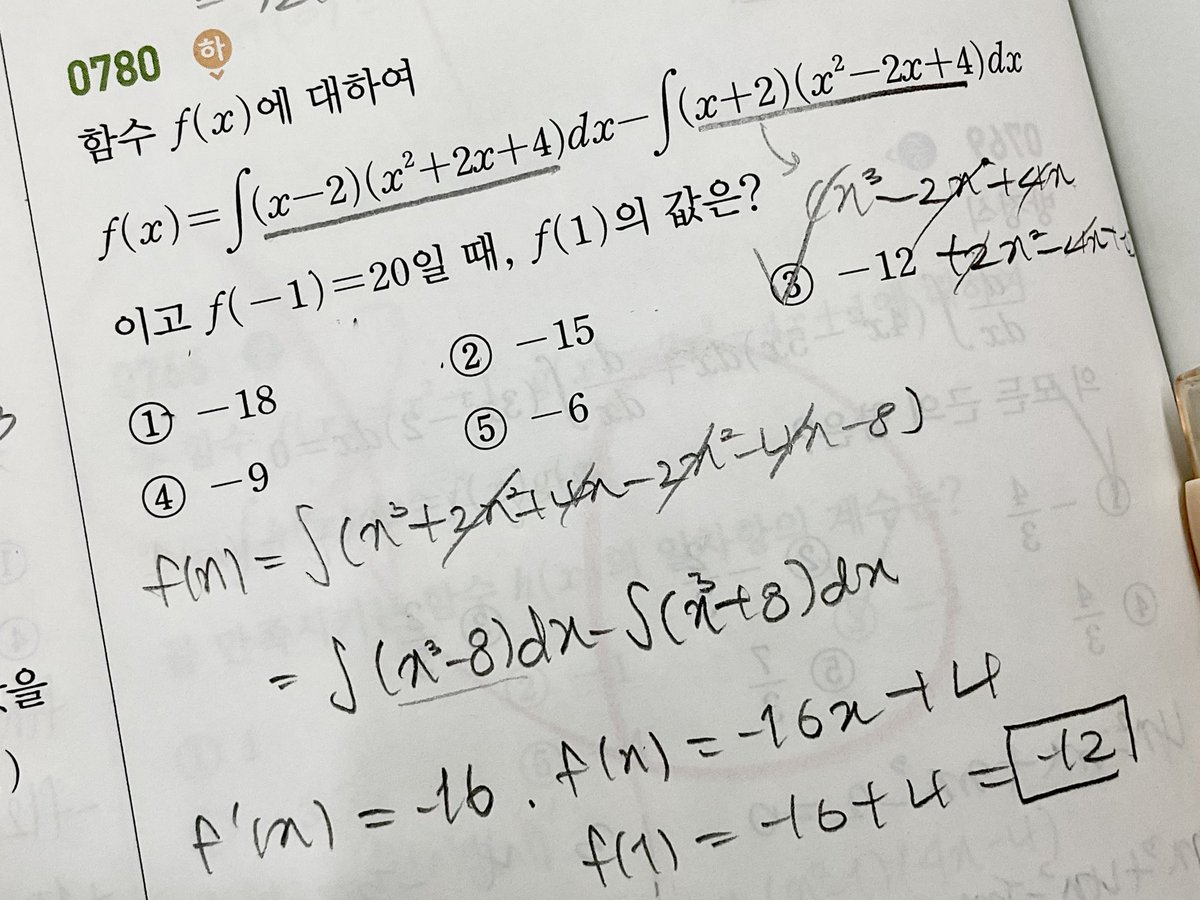 0780 하
함수 f(x)에 대하여
f(x)=∫(x−2)(x²+2x+4)dx−∫(x+2)(x²−2x+4)dx
이고 f(−1)=20일 때, f(1)의 값은?
(x³−2x²+4x
+2x²−4x+
① −18 ② −15 ③ −12
④ −9 ⑤ −6
f(x)=∫(x³+2x²+4x−2x²−4x−8)
=∫(x³−8)dx−∫(x³+8)dx
f'(x)=-16. f(x)=-16x+4
f(1)=-16+4=-12
을
)